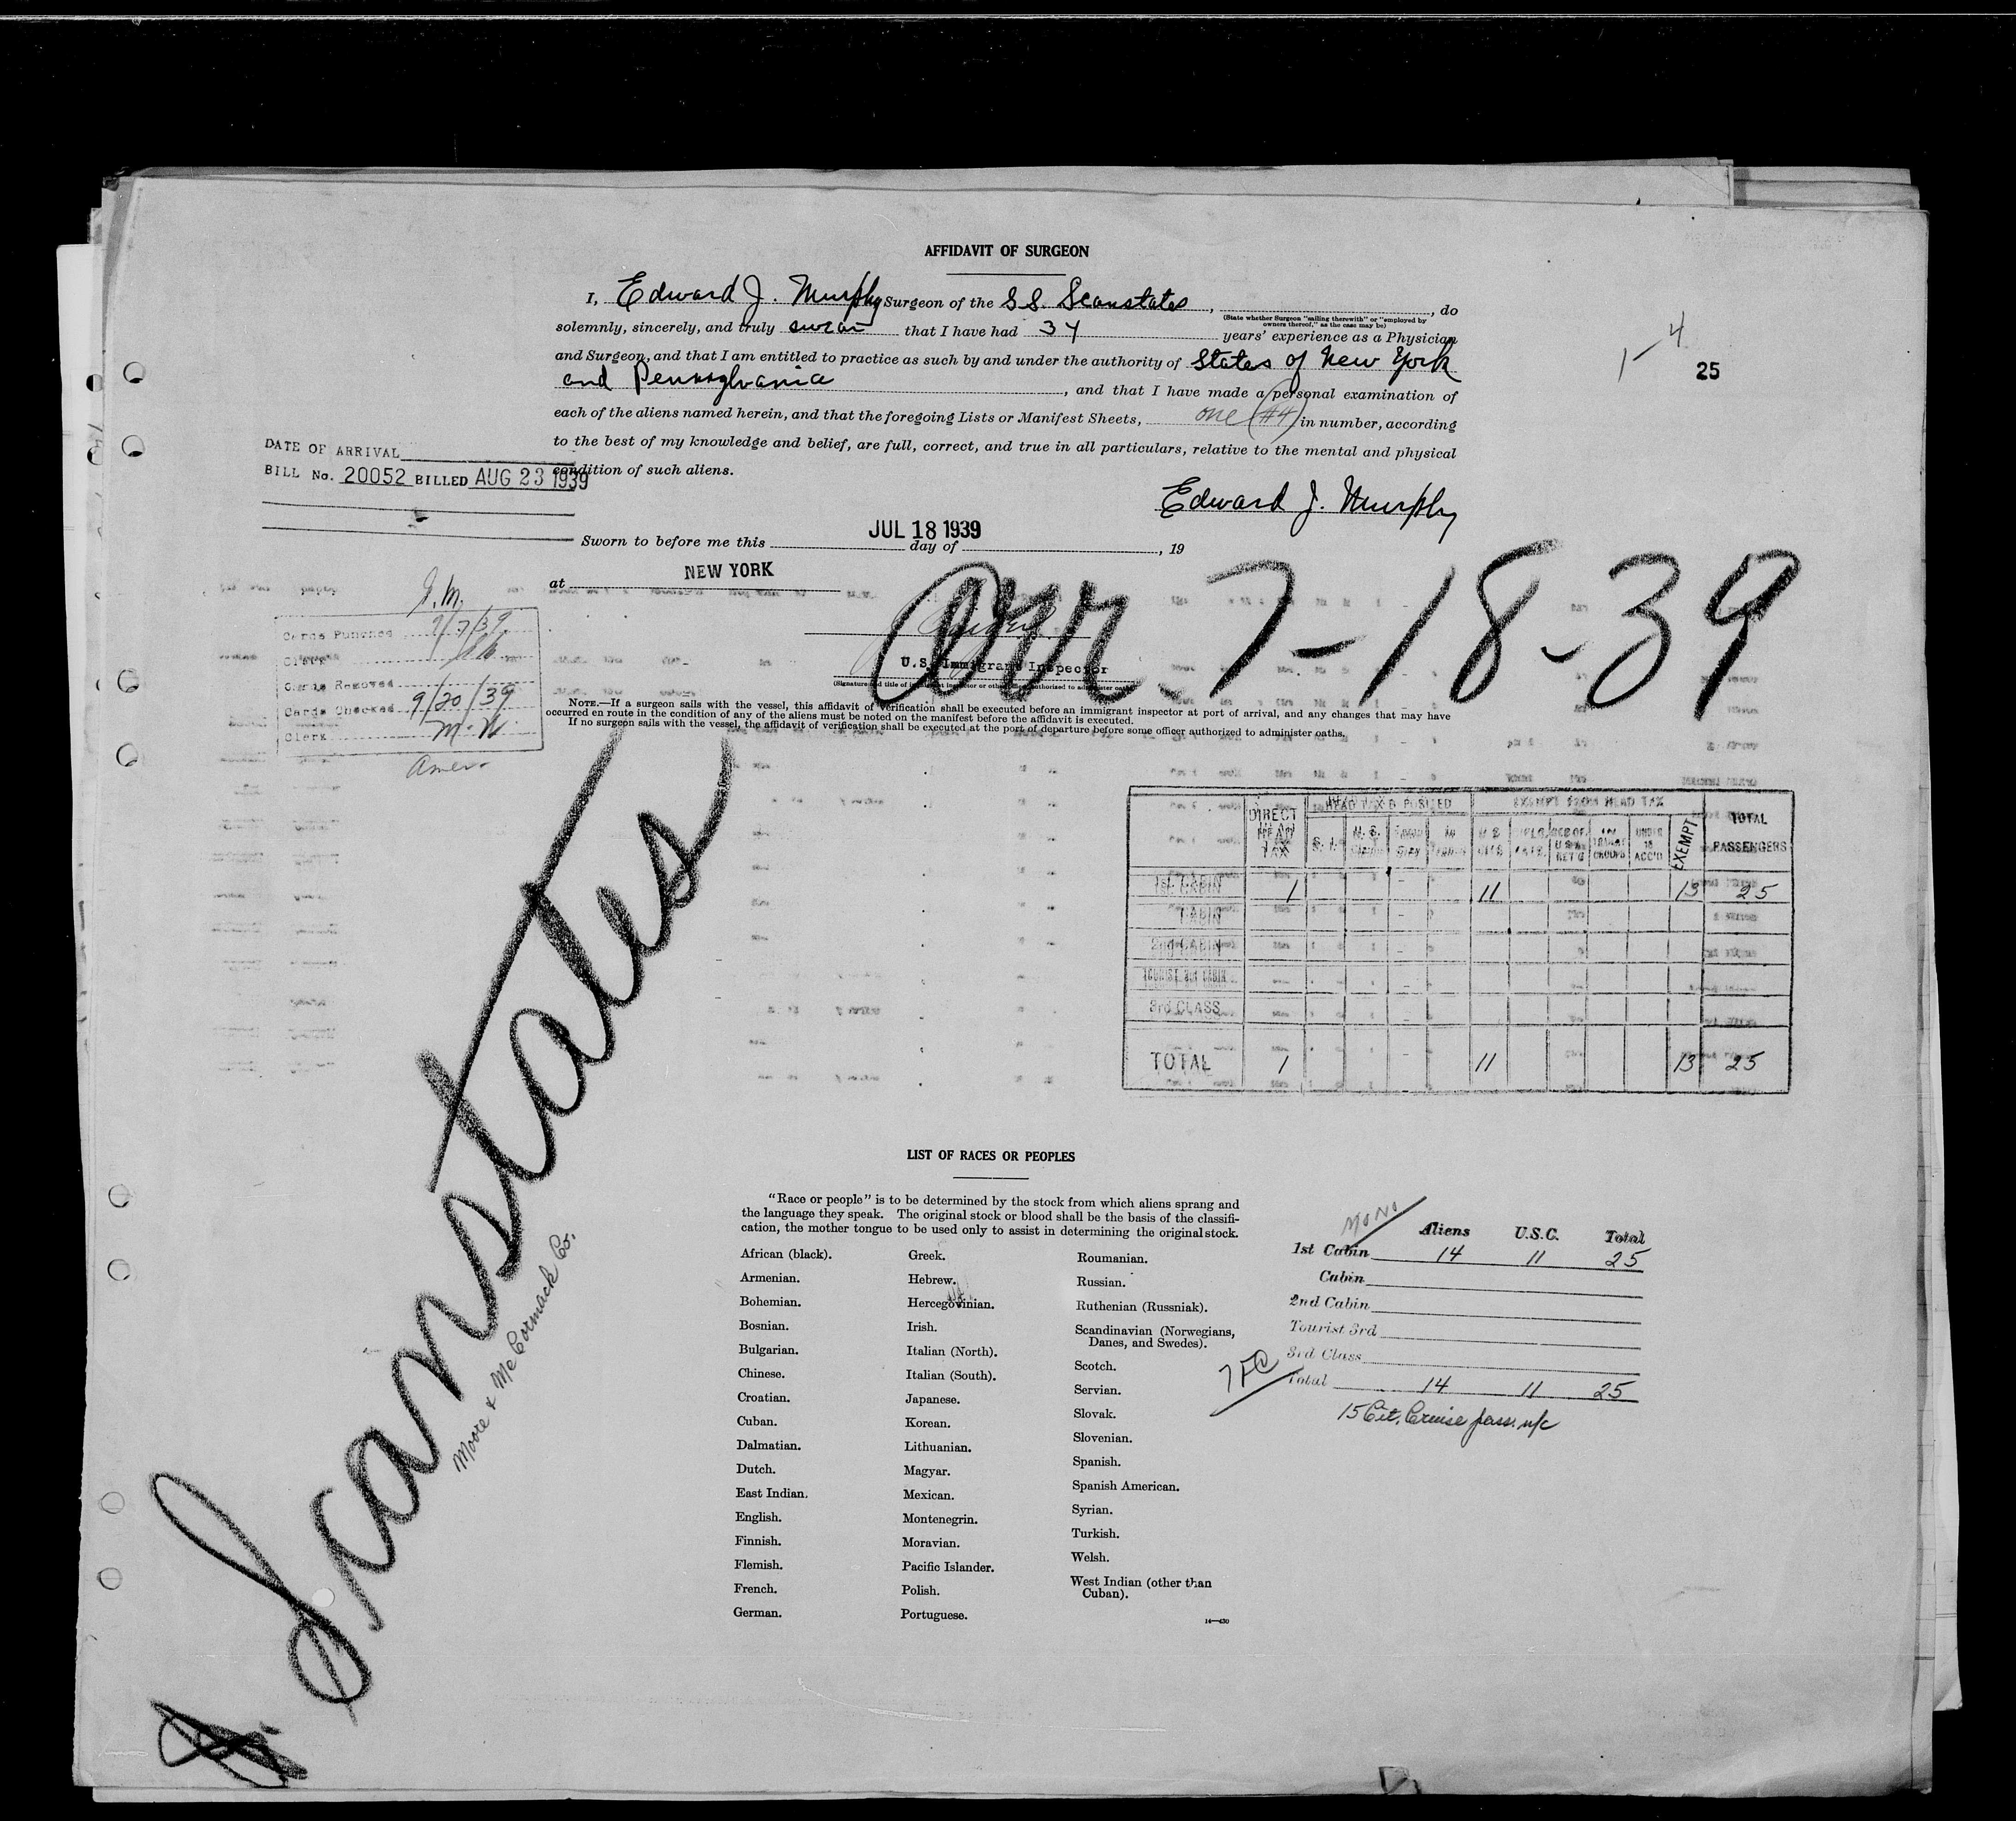 AFFIDAVIT OF SURGEON
I, Edward J. Murphy Surgeon of the S.S. Scanstates, , do
(State whether Surgeon "sailing therewith" or "employed by
owners thereof," as the case may be)
solemnly, sincerely, and truly swear that I have had 34 years' experience as a Physician
and Surgeon, and that I am entitled to practice as such by and under the authority of States of New York
and Pennsylvania, and that I have made a personal examination of
each of the aliens named herein, and that the foregoing Lists or Manifest Sheets, one (#4) in number, according
to the best of my knowledge and belief, are full, correct, and true in all particulars, relative to the mental and physical
condition of such aliens.
1-4
25
DATE OF ARRIVAL
BILL No. 20052 BILLED AUG 23 1939
Edward J. Murphy
JUL 18 1939
Sworn to before me this day of , 19
at NEW YORK
Arr. 7-18-39
U.S. Immigrant Inspector
NOTE.—If a surgeon sails with the vessel, this affidavit of verification shall be executed before an immigrant inspector at port of arrival, and any changes that may have
occurred en route in the condition of any of the aliens must be noted on the manifest before the affidavit is executed.
If no surgeon sails with the vessel, the affidavit of verification shall be executed at the port of departure before some officer authorized to administer oaths.
Cards Punched 9/7/39
Clerk
Cards Removed
Cards Checked 9/20/39
Clerk M.W.
Amer.
DIRECT HEAD TAX HEAD TAX DEPOSITED EXEMPT FROM HEAD TAX EXEMPT TOTAL PASSENGERS
1st CABIN 1 11 13 25
CABIN
2nd CABIN
TOURIST 3rd CABIN
3rd CLASS
TOTAL 1 11 13 25
Scanstates
Moore & McCormack Co.
LIST OF RACES OR PEOPLES
"Race or people" is to be determined by the stock from which aliens sprang and
the language they speak. The original stock or blood shall be the basis of the classifi-
cation, the mother tongue to be used only to assist in determining the original stock.
African (black).
Armenian.
Bohemian.
Bosnian.
Bulgarian.
Chinese.
Croatian.
Cuban.
Dalmatian.
Dutch.
East Indian.
English.
Finnish.
Flemish.
French.
German.
Greek.
Hebrew.
Hercegovinian.
Irish.
Italian (North).
Italian (South).
Japanese.
Korean.
Lithuanian.
Magyar.
Mexican.
Montenegrin.
Moravian.
Pacific Islander.
Polish.
Portuguese.
Roumanian.
Russian.
Ruthenian (Russniak).
Scandinavian (Norwegians,
Danes, and Swedes).
Scotch.
Servian.
Slovak.
Slovenian.
Spanish.
Spanish American.
Syrian.
Turkish.
Welsh.
West Indian (other than
Cuban).
14—430
Aliens U.S.C. Total
1st Cabin 14 11 25
Cabin
2nd Cabin
Tourist 3rd
3rd Class
Total 14 11 25
15 Cit. Cruise pass. n/c